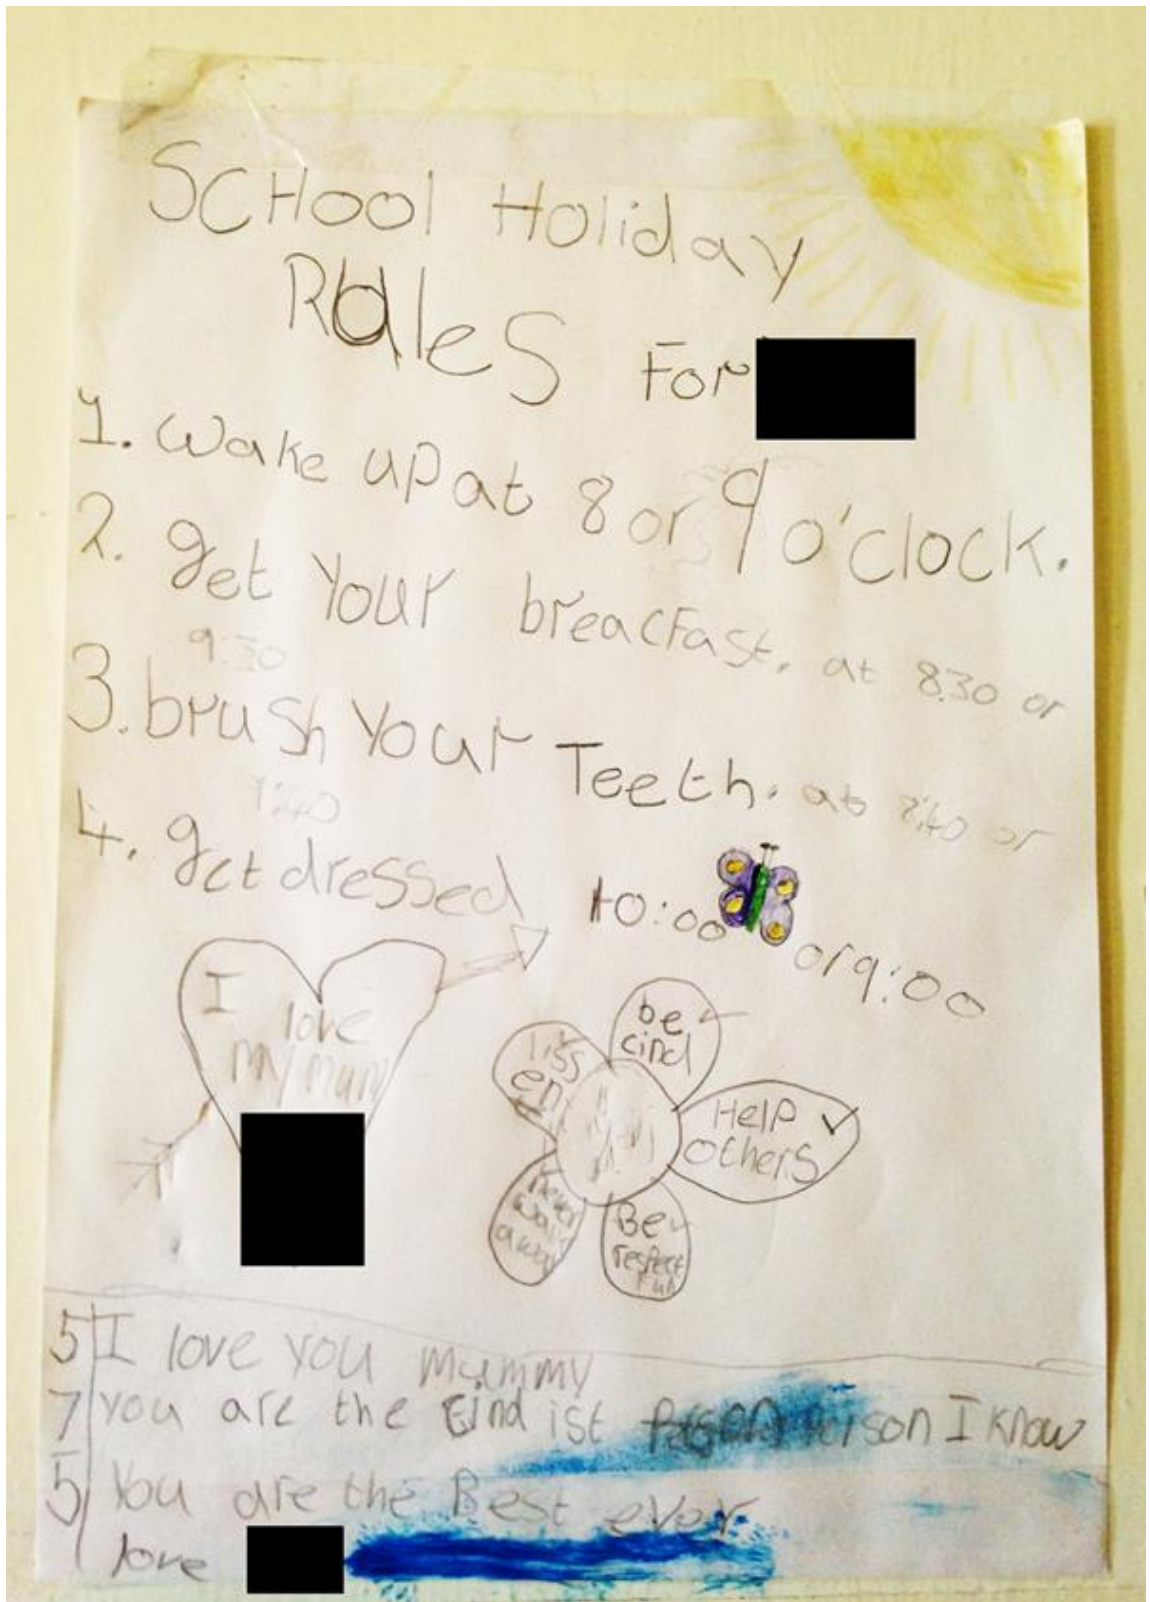 SCHool Holiday
Rules For
1. wake up at 8 or 9 o'clock.
2. get Your breacfast. at 8.30 or
9:30
3. brush Your Teeth. at 8:40 or
9:40
4. get dressed 10:00 or 9:00
I love
my mum
be
cind
liss
en
Help
others
never
walk
away
Be
respect
ful
5 I love you mummy
7 you are the cind ist person I know
5 You are the Best ever
love